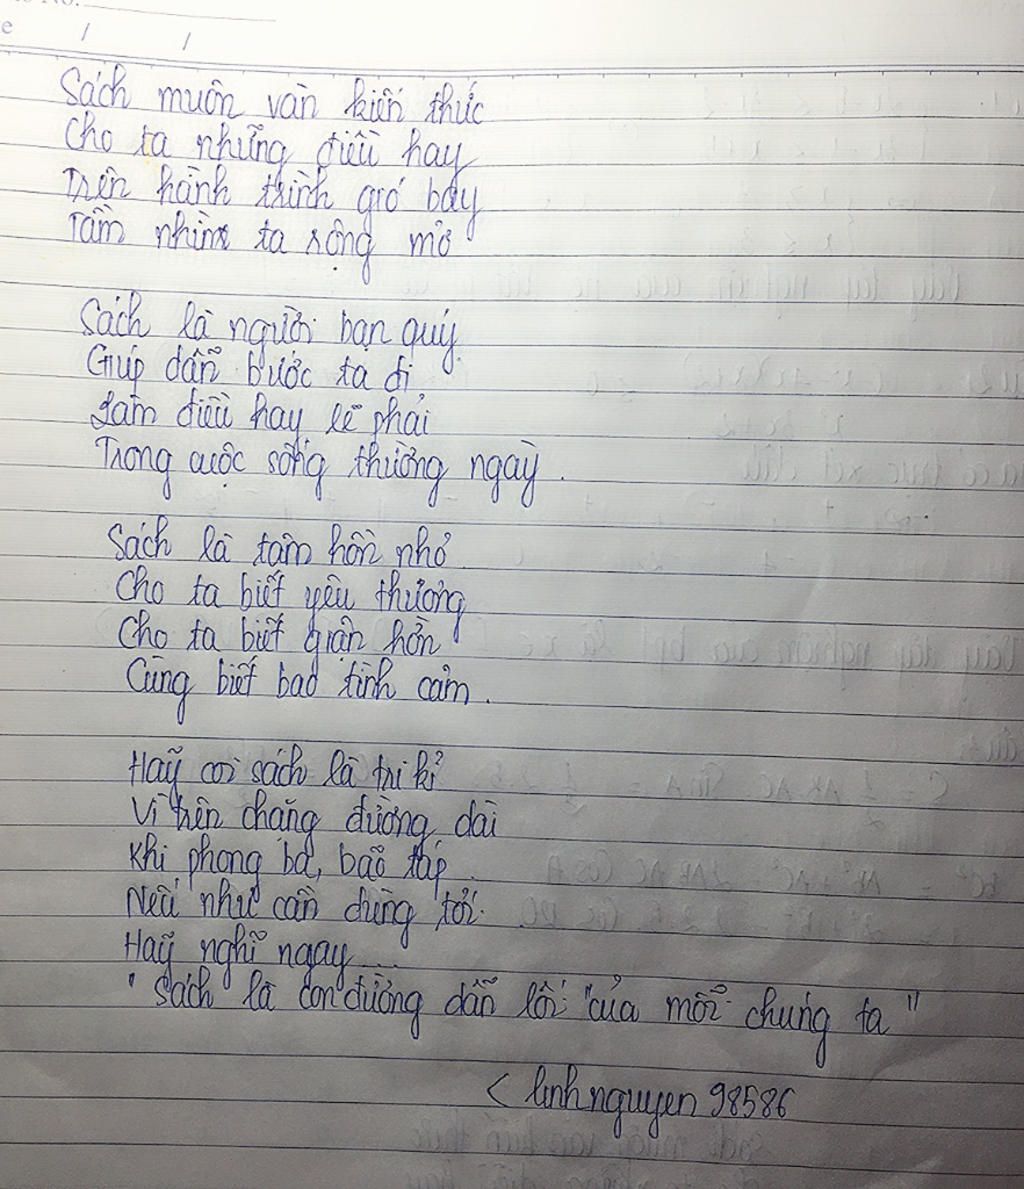 Sách muôn vàn kiến thức
Cho ta những điều hay
Trên hành trình gió bay
Tầm nhìn ta rộng mở
Sách là người bạn quý
Giúp dẫn bước ta đi
Làm điều hay lẽ phải
Trong cuộc sống thường ngày.
Sách là tâm hồn nhỏ
Cho ta biết yêu thương
Cho ta biết giận hờn
Cùng biết bao tình cảm.
Hãy coi sách là tri kỉ
Vì trên chặng đường dài
Khi phong ba, bão táp
Nếu như cần dùng tới.
Hãy nghĩ ngay...
"Sách là con đường dẫn lối "của mỗi chúng ta"
< linhnguyen98586